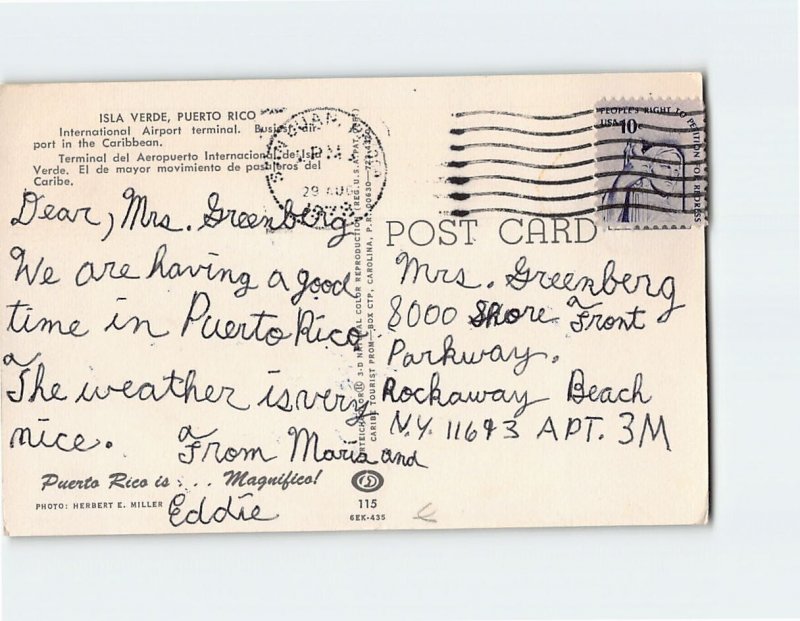 ISLA VERDE, PUERTO RICO
International Airport terminal. Busiest air-
port in the Caribbean.
Terminal del Aeropuerto Internacional de Isla
Verde. El de mayor movimiento de pasajeros del
Caribe.
Dear, Mrs. Greenberg,
We are having a good
time in Puerto Rico.
The weather is very
nice. From Maria and
Eddie
Puerto Rico is . . . Magnifico!
PHOTO: HERBERT E. MILLER
3-D NATURAL COLOR REPRODUCTION (REG. U.S.A. PAT.
CARIBE TOURIST PROM—BOX CTP, CAROLINA, P.R. 00630
115
6EK-435
SAN JUAN,
PM
29 AUG
1978
PEOPLE'S RIGHT TO PETITION FOR REDRESS
USA 10c
POST CARD
Mrs. Greenberg
8000 Shore Front
Parkway.
Rockaway Beach
N.Y. 11693 APT. 3M